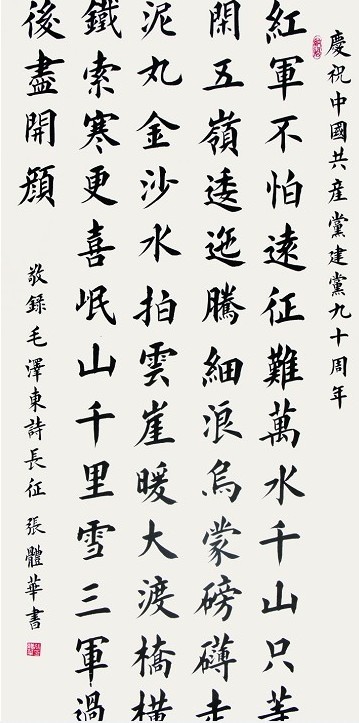 慶祝中國共産黨建黨九十周年
紅軍不怕遠征難萬水千山只等
閑五嶺逶迤騰細浪烏蒙磅礴走
泥丸金沙水拍雲崖暖大渡橋橫
鐵索寒更喜岷山千里雪三軍過
後盡開顔
敬錄毛澤東詩長征 張體華書